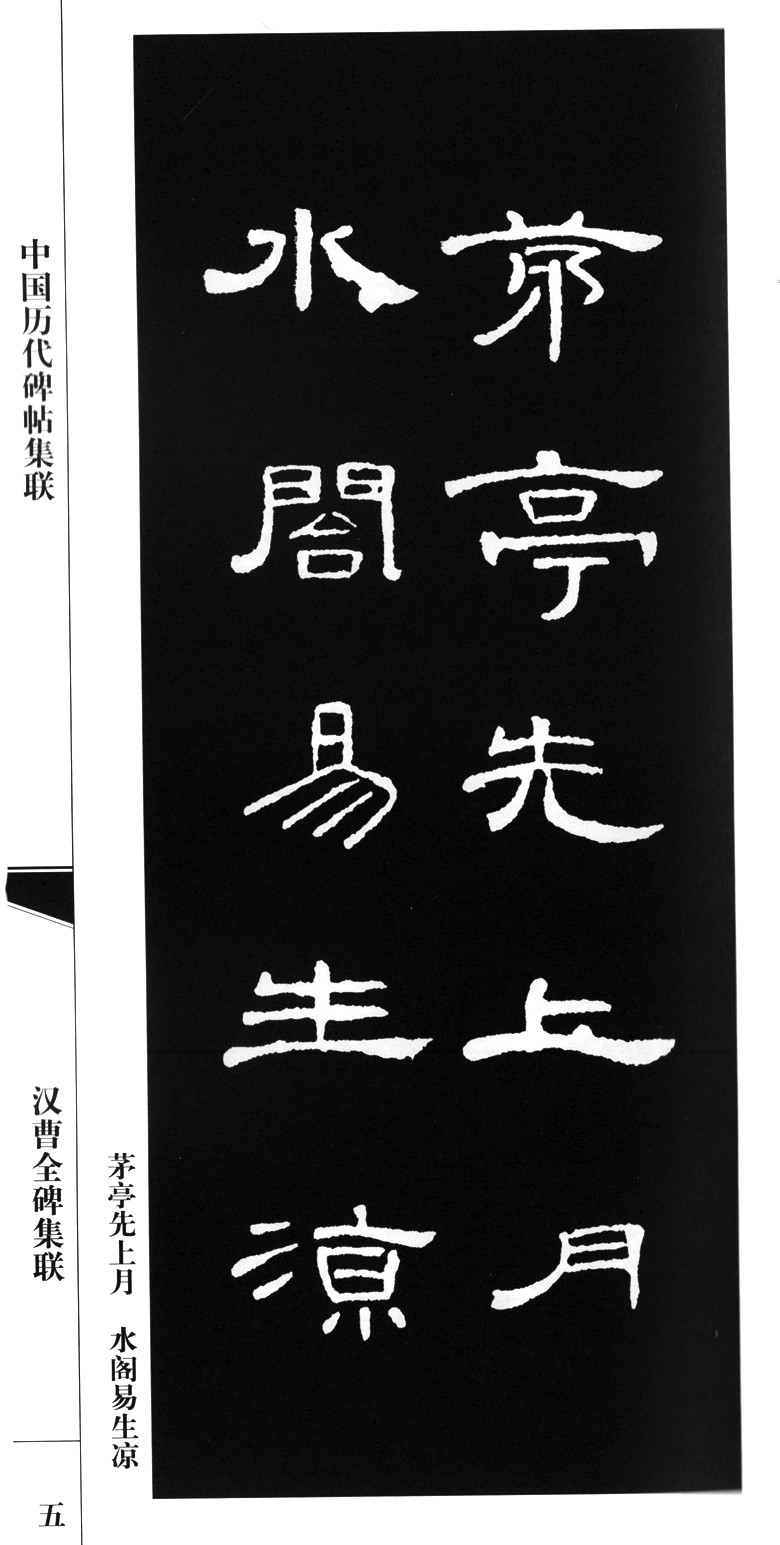 茅亭先上月
水閣易生涼
茅亭先上月 水阁易生凉
中国历代碑帖集联
汉曹全碑集联
五